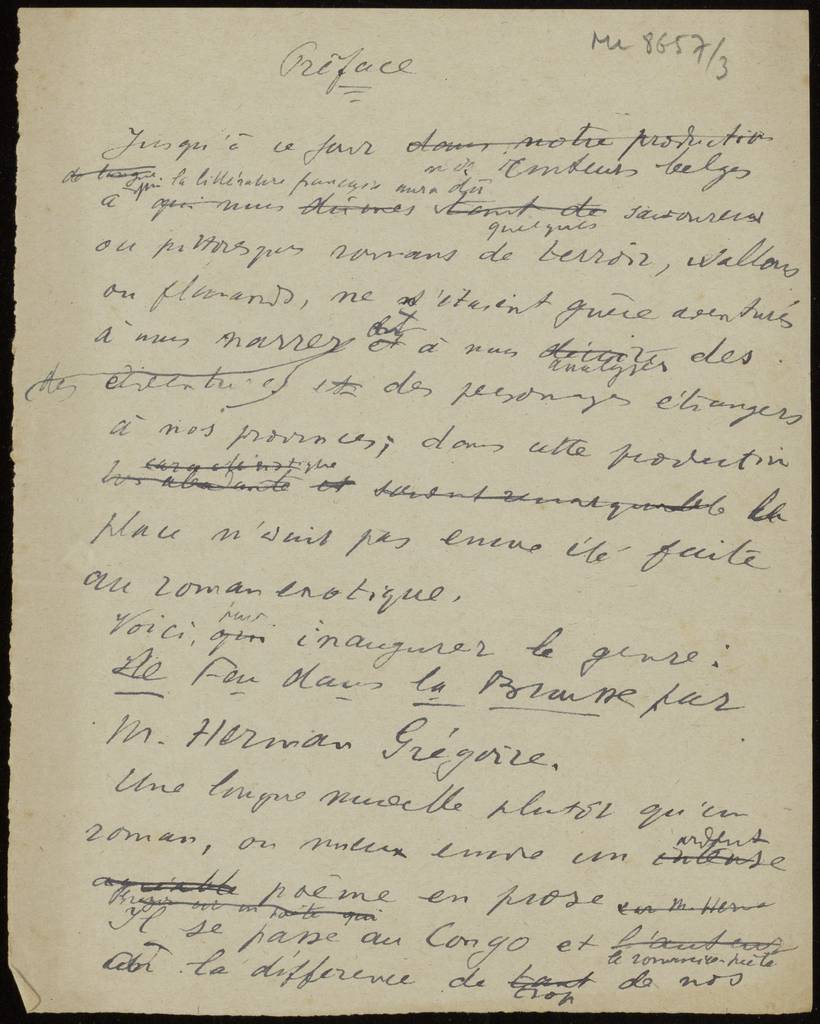 Mu 8657/3
Préface
Jusqu'à ce jour dans notre production
de langue nos conteurs belges
à qui la littérature française aura dû
qui nous tant de savoureux
quelques
ou pittoresques romans de terroir, wallons
ou flamands, ne s'étaient guère aventurés
à nous narrer et à nous décrire des
analyser
des et des personnages étrangers
à nos provinces; dans cette production
caractéristique
abondante et souvent remarquable la
place n'avait pas encore été faite
au roman exotique.
pour
Voici, qui inaugurer le genre:
Le Feu dans la Brousse par
M. Herman Grégoire.
Une longue nouvelle plutôt qu'un
ardent
roman, ou mieux encore un intense
agréable poème en prose car M. Herma
un poète qui
Il se passe au Congo et l'auteur
le romancier-poète
à la différence de tant de nos
trop